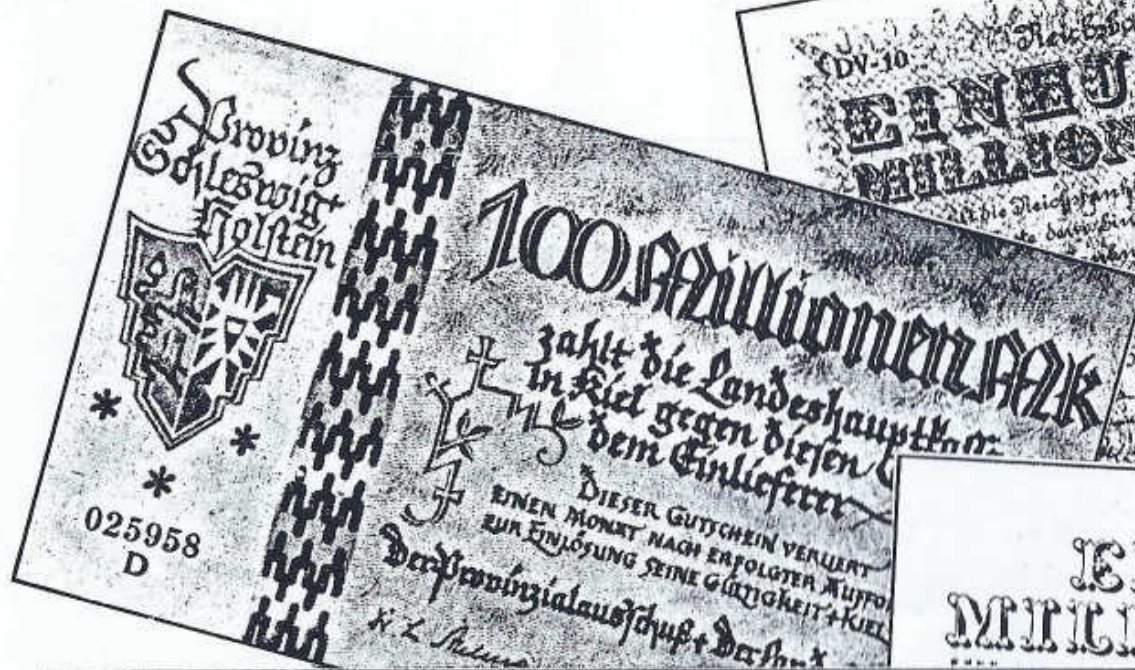 Provinz
Schleswig-
Holstein
025958
D
100 Millionen Mk
zahlt die Landeshauptkasse
in Kiel gegen diesen
dem Einlieferer
DIESER GUTSCHEIN VERLIERT
EINEN MONAT NACH ERFOLGTER AUFFO
ZUR EINLÖSUNG SEINE GÜLTIGKEIT + KIEL
Der Provinzialausschuß +
DV-10
EINHU
MILLION
die Reichs
E
MILL